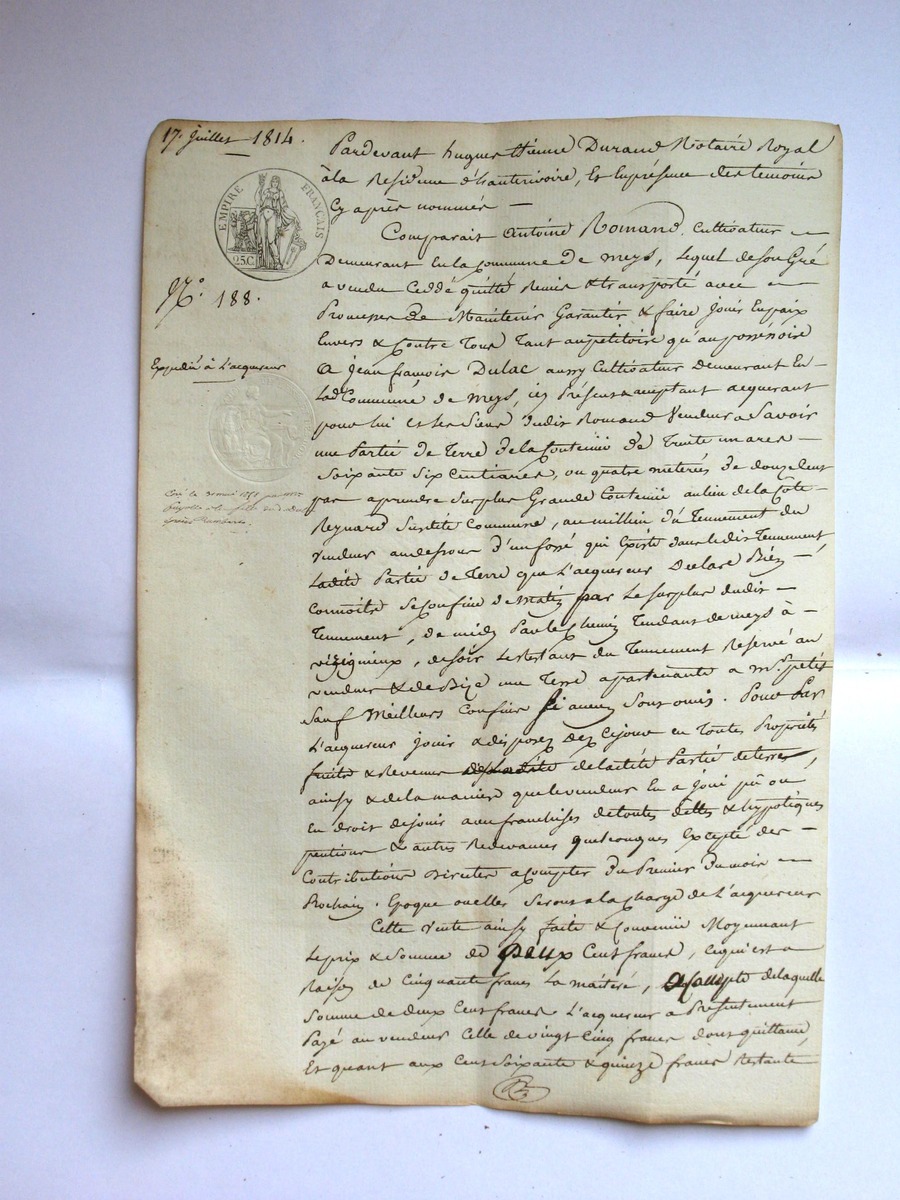 17. Juillet 1814.
EMPIRE FRANÇAIS
25.C
N.° 188.
Expedié à L'acquereur
Pardevant hugues Etienne Durand Notaire Royal
à la Residence d'hauterivoire, Et En présence des temoins
Cy après nommés —
Comparait Antoine Romand Cultivateur —
Demeurant En la Commune de Meys, Lequel de Son Gré
a vendu Ceddé quitté Remis & transporté avec —
Promesses De Maintenir Garantir & faire Jouir En paix
Envers & Contre Tous Tant au petitoire qu'au possessoire
A Jean françois Dulac aussy Cultivateur Demeurant En —
Lad. Commune de Meys, icy Présent & aceptant acquerant
pour lui et les Siens dudit Romand Vendeur a Savoir
une Partie de Terre De la Contenüe de Trente un ares —
Soixante Six Centiares, ou quatre meterés de
par aprendre Surplus Grande Contenüe au lieu de la Côte
Reynard Susdite Commune, au millieu du Tennement du
Vendeur au dessous D'un fossé qui Existe dans ledit Tennement
Ladite Partie de Terre que L'acquereur Declare Bien —
Connoitre Se Confine de Matin par Le Surplus dudit —
Tennement, de midy Par le Chemin Tendant de meys à —
, de soir Le Restant du Tennement Reservé au
vendeur & de Bize une Terre apartenante a M. petit
Sauf Meilleurs Confins Si aucuns Sont omis. Pour Par
L'acquereur Jouir & disposer Dez Cejour en Toutes Propriétés
fruits & Revenus de la dite Partie de terre,
ainsy & de la maniere que le vendeur En a Joui pû ou
En droit de jouir aux franchises de toutes dettes & hypoteques
pentions & autres Redevances quelconques Excepté des —
Contributions Directes a Compter du Premier du mois —
Prochain. Epoque ou elles Seront a la Charge de L'acquereur
Cette Vente ainsy faite & Convenüe Moyennant
Le prix & Somme de Deux Cent francs, ce qui est a
Raison de Cinquante francs La , a Compte de laquelle
Somme de deux Cent francs L'acquereur a Presentement
Payé au vendeur Celle de vingt Cinq francs dont quittance
Et quant aux Cent Soixante & quinze francs Restants